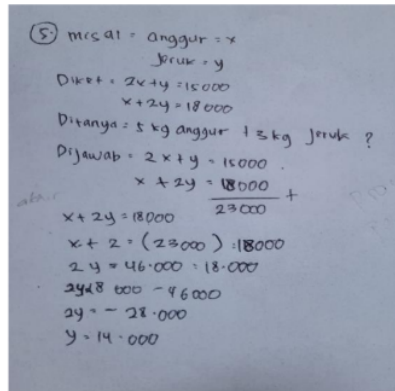 5. misal = anggur = x
Jeruk = y
Diket = 2x+y = 15000
x + 2y = 18000
Ditanya = 5 kg anggur + 3 kg Jeruk ?
Dijawab = 2x+y = 15000
x + 2y = 18000 +
23000
x + 2y = 18000
x + 2 = (23000) = 18000
2y = 46.000 = 18.000
2y = - 28.000
y = 14.000